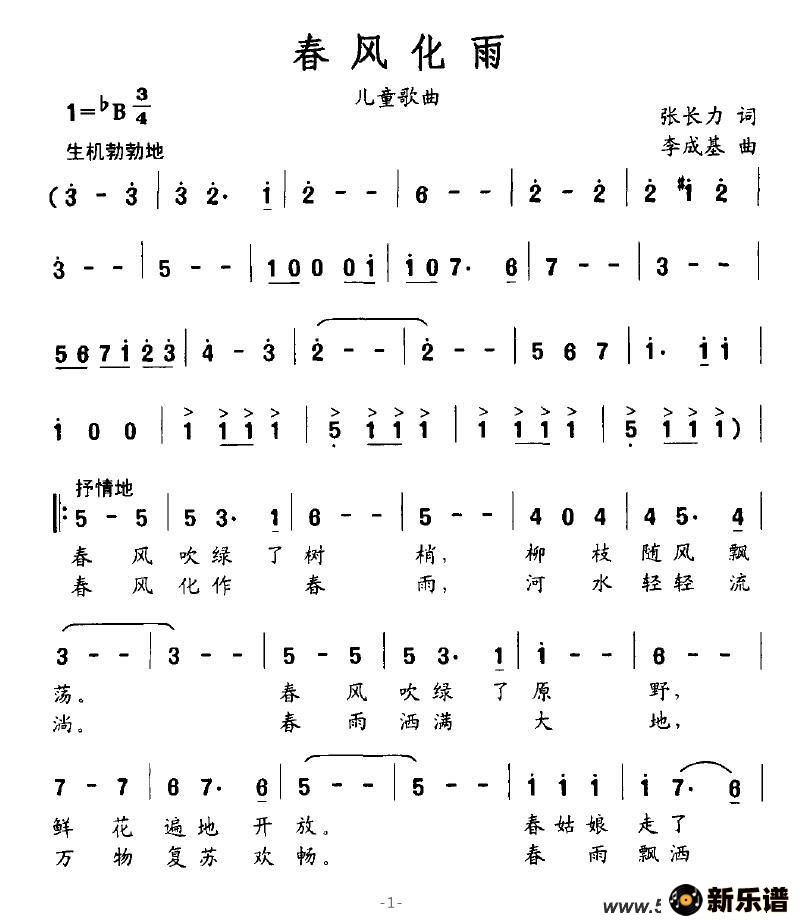 春风化雨
儿童歌曲
1=♭B 3/4
张长力 词
生机勃勃地
李成基 曲
(3̇ - 3̇ | 3̇ 2̇· 1̇ | 2̇ - - | 6 - - | 2̇ - 2̇ | 2̇ #1̇ 2̇ |
3̇ - - | 5 - - | 1̇00 01̇ | 1̇07· 6 | 7 - - | 3 - - |
5 6 7 1̇ 2̇ 3̇ | 4̇ - 3̇ | 2̇ - - | 2̇ - - | 5 6 7 | 1̇· 1̇ 1̇ |
1̇ 0 0 | 1 111 1 | 5̣ 111 1 | 1 111 1 | 5̣ 111 1) |
抒情地
5 - 5 | 5 3· 1 | 6 - - | 5 - - | 4 0 4 | 4 5· 4 |
春 风 吹 绿 了 树 梢, 柳 枝 随 风 飘
春 风 化 作 春 雨, 河 水 轻 轻 流
3 - - | 3 - - | 5 - 5 | 5 3· 1 | 1̇ - - | 6 - - |
荡。 春 风 吹 绿 了 原 野,
淌。 春 雨 洒 满 大 地,
7 - 7 | 6 7· 6 | 5 - - | 5 - - | 1̇ 1̇ 1̇ | 1̇ 7· 6 |
鲜 花 遍 地 开 放。 春 姑 娘 走 了
万 物 复 苏 欢 畅。 春 雨 飘 洒
-1-
www.5
新乐谱